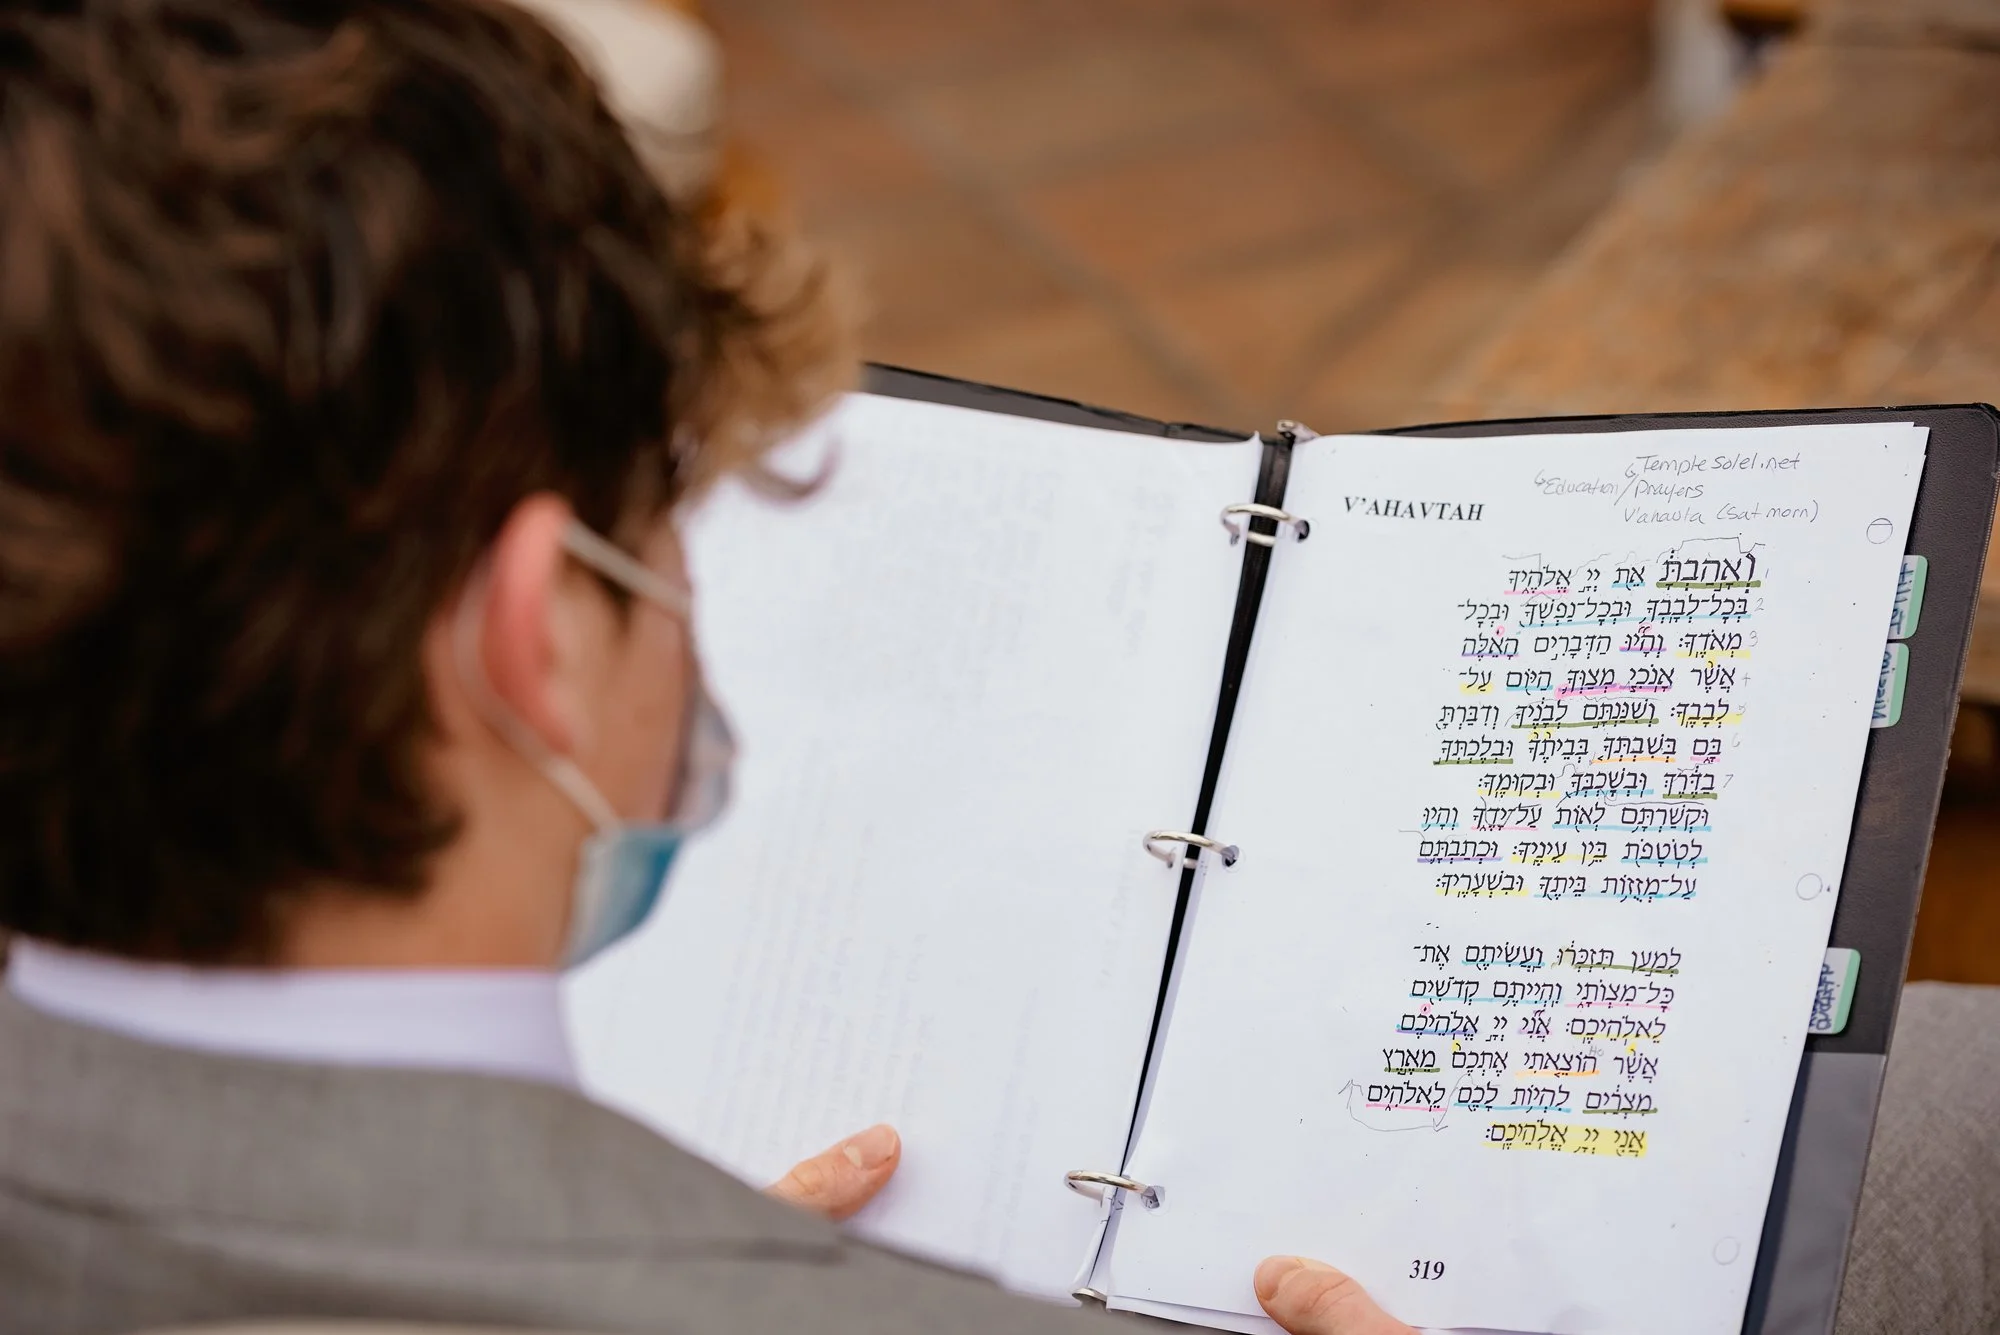 TempleSolel.net
Education/Prayers
V'ahavta (Sat morn)
V'AHAVTAH
וְאָהַבְתָּ֫ אֵת יְיָ אֱלֹהֶיךָ 1
בְּכׇל־לְבָבְךָ וּבְכׇל־נַפְשְׁךָ וּבְכׇל־ 2
מְאֹדֶךָ׃ וְהָיוּ הַדְּבָרִים הָאֵלֶּה 3
אֲשֶׁר אָנֹכִי מְצַוְּךָ הַיּוֹם עַל־ 4
לְבָבֶךָ׃ וְשִׁנַּנְתָּם לְבָנֶיךָ וְדִבַּרְתָּ 5
בָּם בְּשִׁבְתְּךָ בְּבֵיתֶךָ וּבְלֶכְתְּךָ 6
בַדֶּרֶךְ וּבְשׇׁכְבְּךָ וּבְקוּמֶךָ׃ 7
וּקְשַׁרְתָּם לְאוֹת עַל־יָדֶךָ וְהָיוּ
לְטֹטָפֹת בֵּין עֵינֶיךָ׃ וּכְתַבְתָּם
עַל־מְזֻזוֹת בֵּיתֶךָ וּבִשְׁעָרֶיךָ׃
לְמַעַן תִּזְכְּרוּ וַעֲשִׂיתֶם אֶת־
כׇּל־מִצְוֹתָי וִהְיִיתֶם קְדֹשִׁים
לֵאלֹהֵיכֶם׃ אֲנִי יְיָ אֱלֹהֵיכֶם
אֲשֶׁר הוֹצֵאתִי אֶתְכֶם מֵאֶרֶץ
מִצְרַיִם לִהְיוֹת לָכֶם לֵאלֹהִים
אֲנִי יְיָ אֱלֹהֵיכֶם׃
319